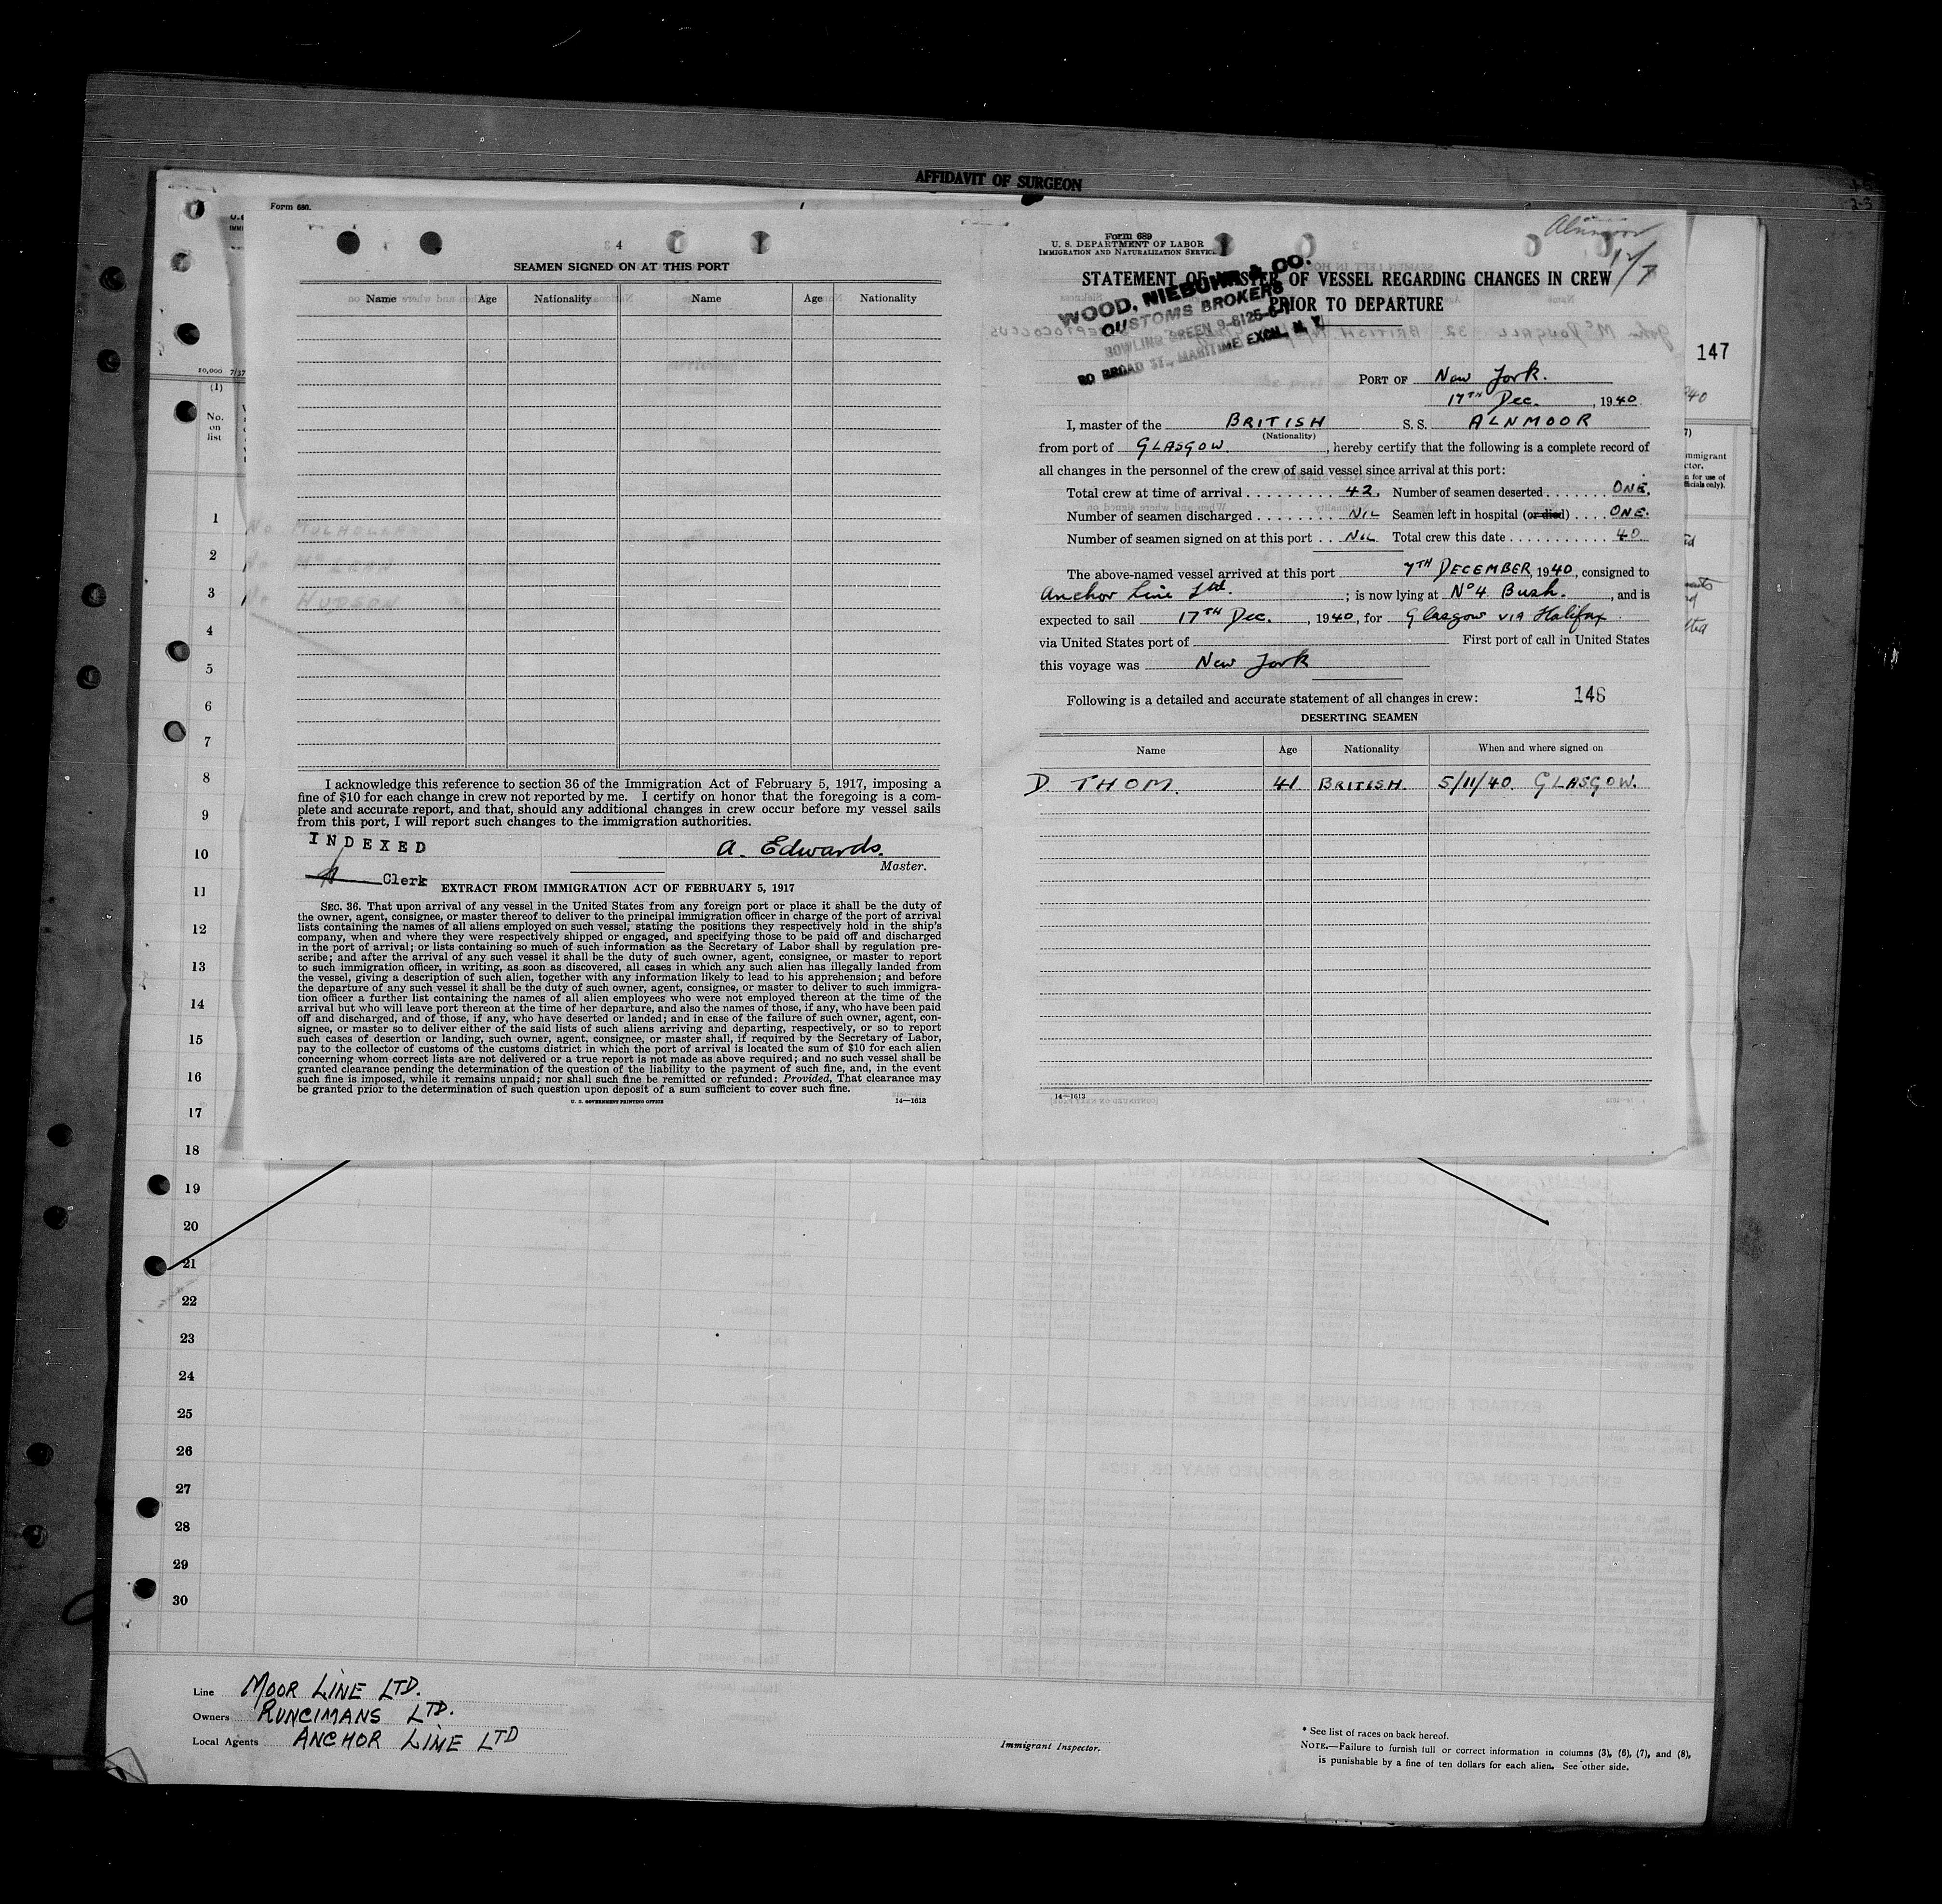 AFFIDAVIT OF SURGEON
Form 689.
4
SEAMEN SIGNED ON AT THIS PORT
Name Age Nationality Name Age Nationality
I acknowledge this reference to section 36 of the Immigration Act of February 5, 1917, imposing a
fine of $10 for each change in crew not reported by me. I certify on honor that the foregoing is a com-
plete and accurate report, and that, should any additional changes in crew occur before my vessel sails
from this port, I will report such changes to the immigration authorities.
INDEXED
A. Edwards.
Master.
Clerk
EXTRACT FROM IMMIGRATION ACT OF FEBRUARY 5, 1917
SEC. 36. That upon arrival of any vessel in the United States from any foreign port or place it shall be the duty of
the owner, agent, consignee, or master thereof to deliver to the principal immigration officer in charge of the port of arrival
lists containing the names of all aliens employed on such vessel, stating the positions they respectively hold in the ship's
company, when and where they were respectively shipped or engaged, and specifying those to be paid off and discharged
in the port of arrival; or lists containing so much of such information as the Secretary of Labor shall by regulation pre-
scribe; and after the arrival of any such vessel it shall be the duty of such owner, agent, consignee, or master to report
to such immigration officer, in writing, as soon as discovered, all cases in which any such alien has illegally landed from
the vessel, giving a description of such alien, together with any information likely to lead to his apprehension; and before
the departure of any such vessel it shall be the duty of such owner, agent, consignee, or master to deliver to such immigra-
tion officer a further list containing the names of all alien employees who were not employed thereon at the time of the
arrival but who will leave port thereon at the time of her departure, and also the names of those, if any, who have been paid
off and discharged, and of those, if any, who have deserted or landed; and in case of the failure of such owner, agent, con-
signee, or master so to deliver either of the said lists of such aliens arriving and departing, respectively, or so to report
such cases of desertion or landing, such owner, agent, consignee, or master shall, if required by the Secretary of Labor,
pay to the collector of customs of the customs district in which the port of arrival is located the sum of $10 for each alien
concerning whom correct lists are not delivered or a true report is not made as above required; and no such vessel shall be
granted clearance pending the determination of the question of the liability to the payment of such fine, and, in the event
such fine is imposed, while it remains unpaid; nor shall such fine be remitted or refunded: Provided, That clearance may
be granted prior to the determination of such question upon deposit of a sum sufficient to cover such fine.
U. S. GOVERNMENT PRINTING OFFICE 14—1613
Alnmoor
12/7
Form 689
U. S. DEPARTMENT OF LABOR
IMMIGRATION AND NATURALIZATION SERVICE
STATEMENT OF MASTER OF VESSEL REGARDING CHANGES IN CREW
PRIOR TO DEPARTURE
WOOD, NIEBUHR & CO.
CUSTOMS BROKERS
BOWLING GREEN 9-8125-6-7
80 BROAD ST., MARITIME EXCH., N. Y.
147
PORT OF New York.
17TH Dec., 1940
I, master of the BRITISH S. S. ALNMOOR
(Nationality)
from port of GLASGOW., hereby certify that the following is a complete record of
all changes in the personnel of the crew of said vessel since arrival at this port:
Total crew at time of arrival 42. Number of seamen deserted ONE.
Number of seamen discharged NIL Seamen left in hospital (or died) ONE.
Number of seamen signed on at this port NIL Total crew this date 40.
The above-named vessel arrived at this port 7TH DECEMBER, 1940, consigned to
Anchor Line Ltd.; is now lying at No 4 Bush., and is
expected to sail 17TH Dec., 1940, for Glasgow VIA Halifax.
via United States port of First port of call in United States
this voyage was New York
Following is a detailed and accurate statement of all changes in crew: 146
DESERTING SEAMEN
Name Age Nationality When and where signed on
D THOM. 41 BRITISH. 5/11/40. GLASGOW.
14—1613
10,000 7/37
(1)
No.
on
list
1
2
3
4
5
6
7
8
9
10
11
12
13
14
15
16
17
18
19
20
21
22
23
24
25
26
27
28
29
30
Line MOOR LINE LTD.
Owners RUNCIMANS LTD.
Local Agents ANCHOR LINE LTD
Immigrant Inspector.
* See list of races on back hereof.
NOTE.—Failure to furnish full or correct information in columns (3), (6), (7), and (8),
is punishable by a fine of ten dollars for each alien. See other side.